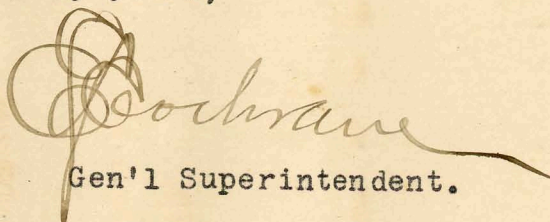 Cochrane
Gen'l Superintendent.